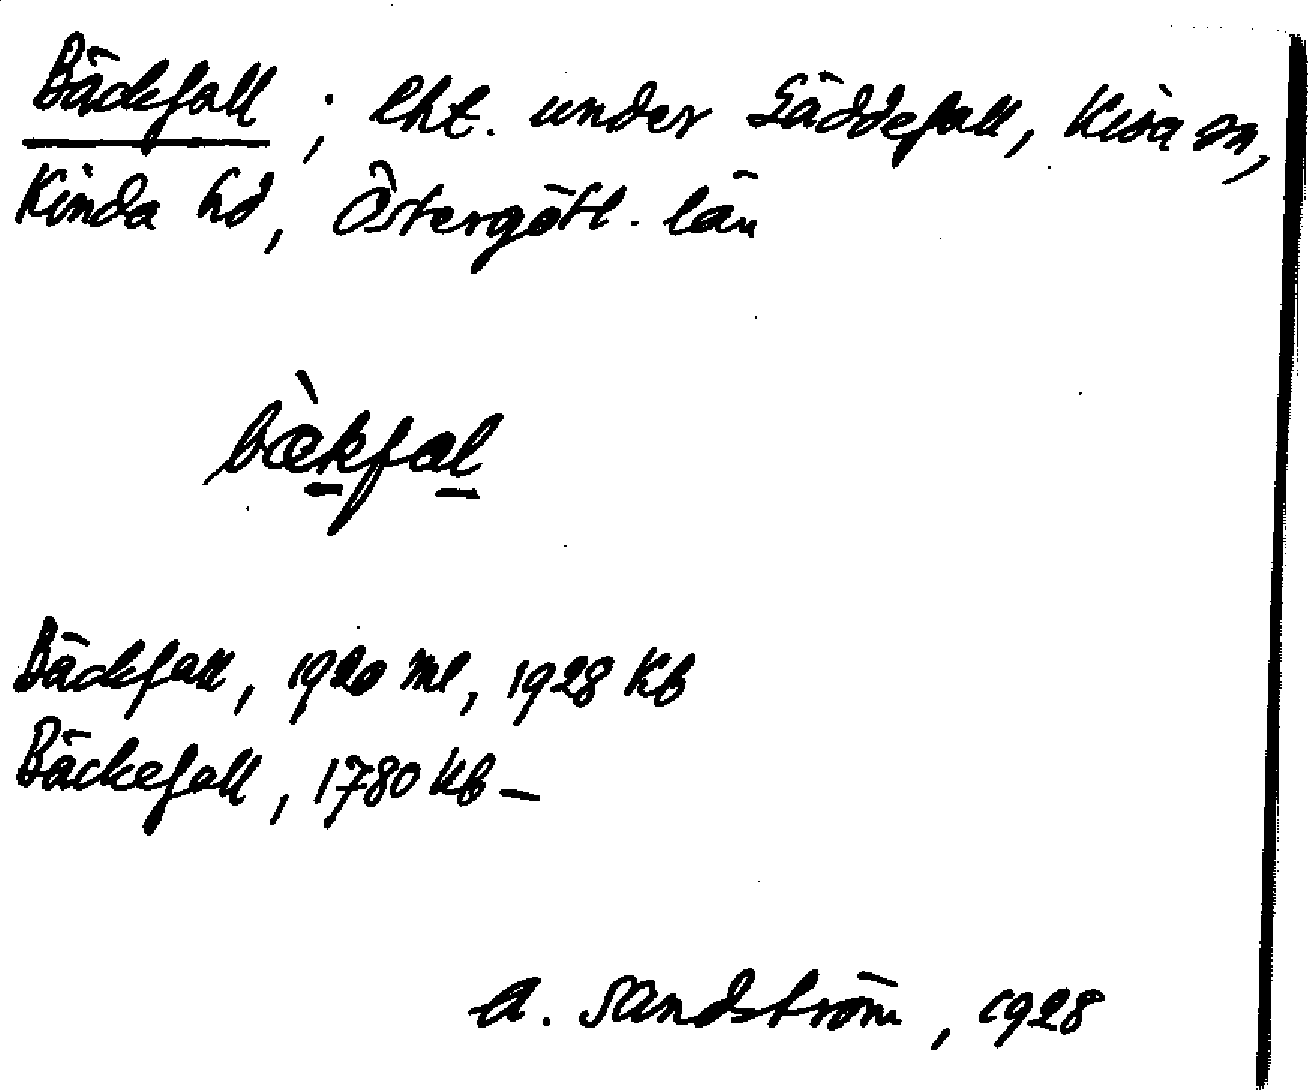 Bäckfall ; lht. under Gäddefall, Kisa sn,
Kinda hd, Östergötl. län
bæ̀kfal
Bäckfall, 1920 Ml, 1928 Kb
Bäckefall, 1780 Kb –
A. Sandström, 1928